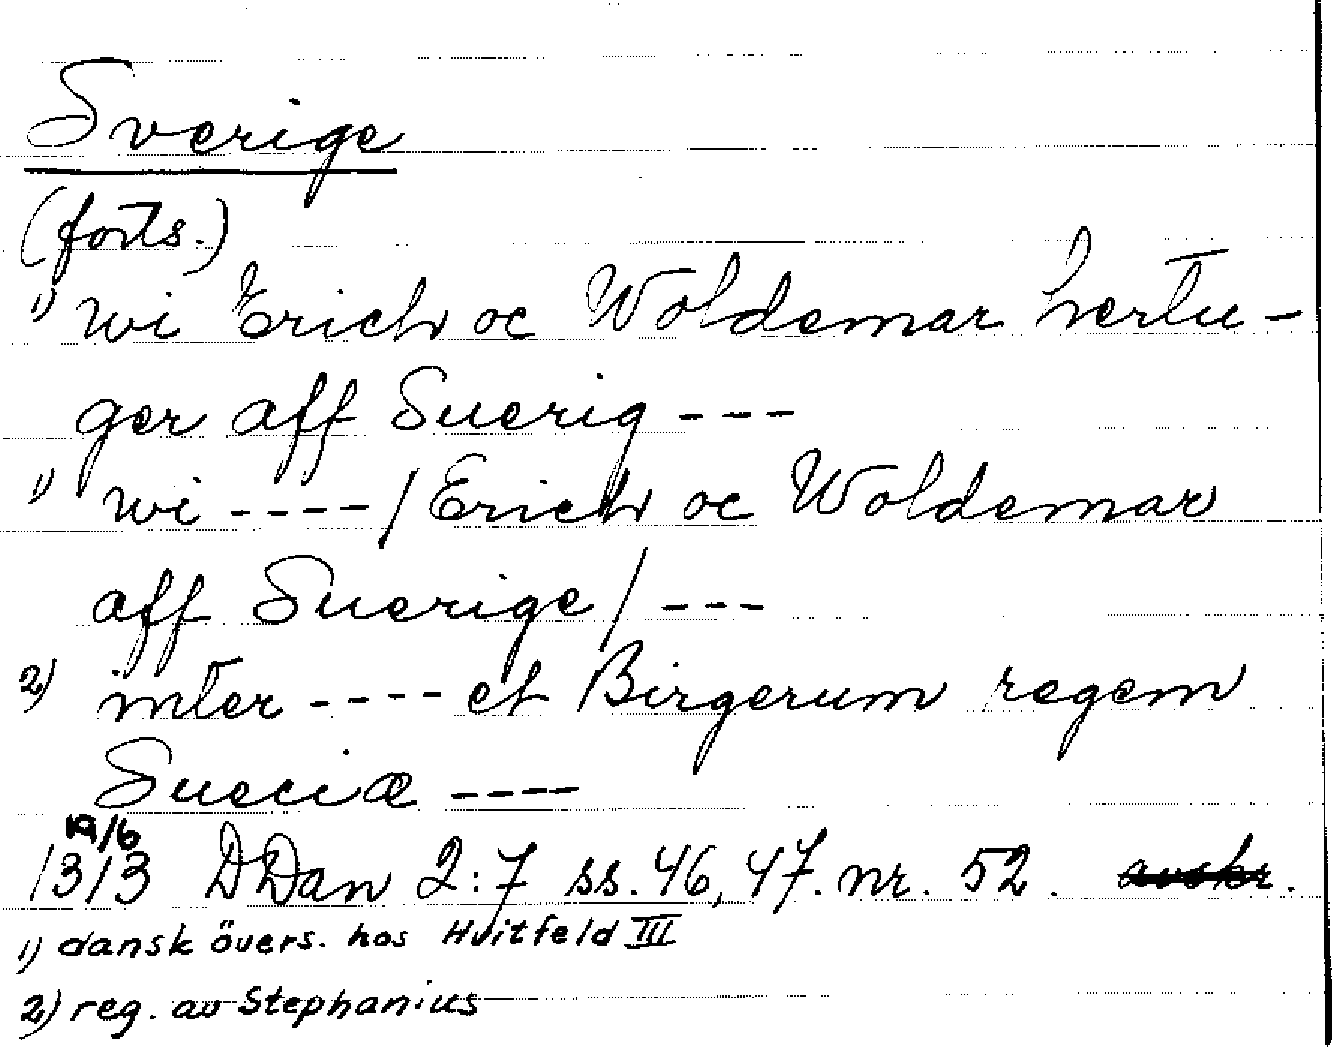 Sverige
(forts.)
1) wi Erich oc Woldemar hertu-
ger aff Suerig ---
1) wi ----/Erich oc Woldemar
aff Suerige/---
2) inter ---- et Birgerum regem
Sueciæ ----
19/6
1313 DDan 2:7 ss. 46, 47. nr. 52. avskr.
1) dansk övers. hos Hvitfeld III
2) reg. av Stephanius